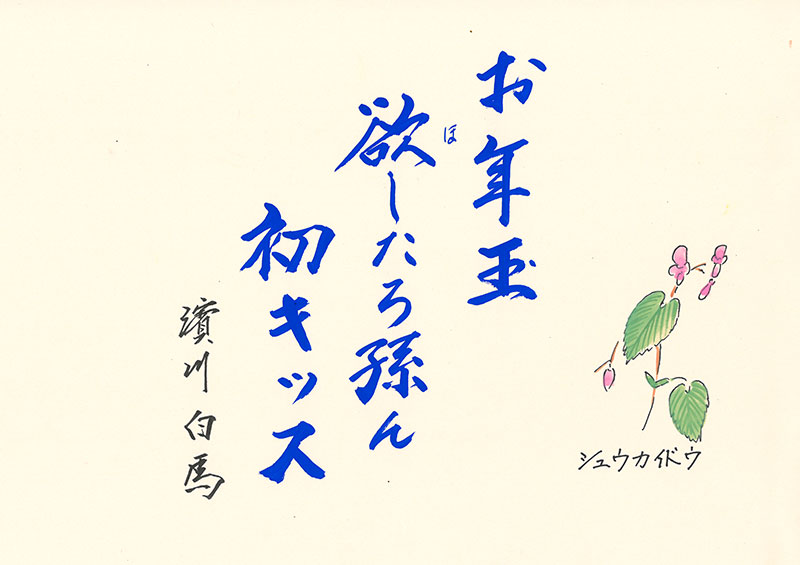 お年玉
欲したろ孫ん
ほ
初キッス
濱川白馬
シュウカイドウ